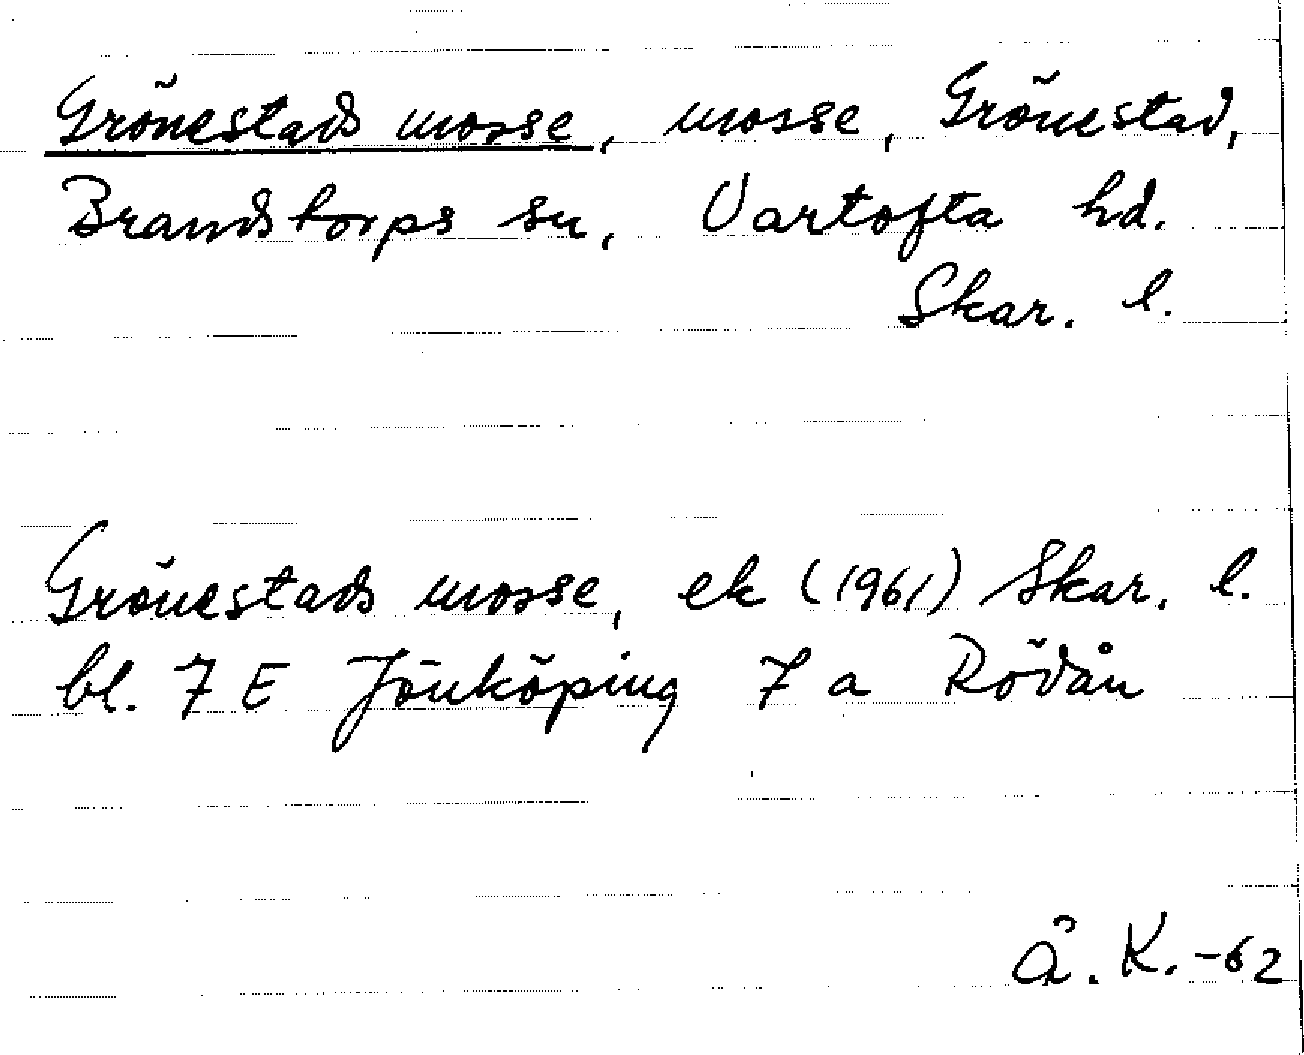 Grönestads mosse, mosse, Grönestad,
Brandstorps sn, Vartofta hd.
Skar. l.
Grönestads mosse, ek (1961) Skar. l.
bl. 7 E Jönköping 7 a Rödån
Å. K. -62